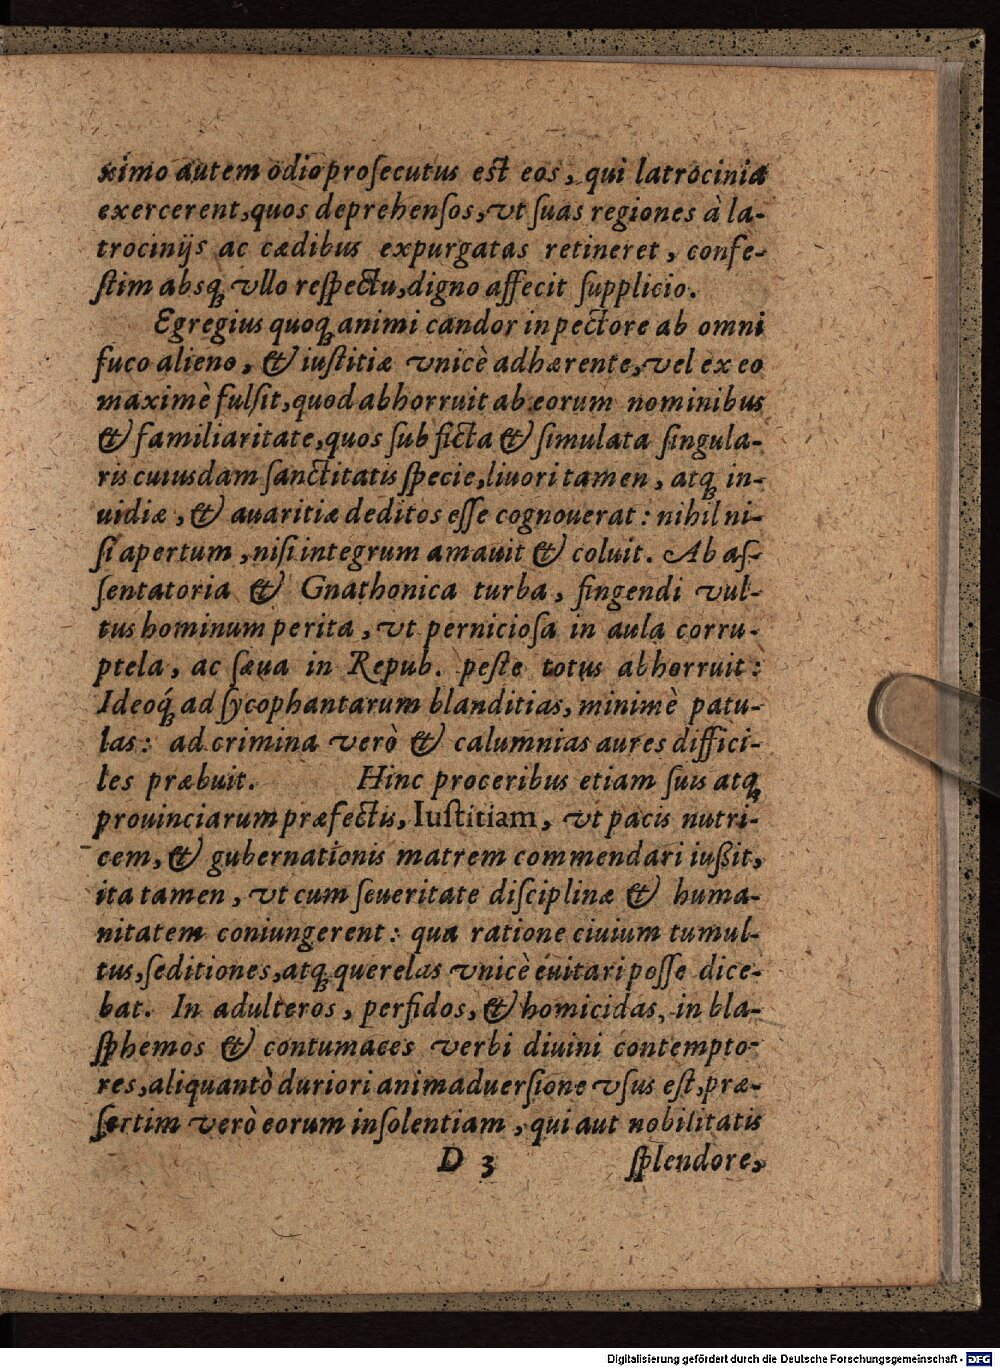 ximo autem odio prosecutus est eos, qui latrocinia
exercerent, quos deprehensos, vt suas regiones à la-
trocinijs ac cædibus expurgatas retineret, confe-
stim absq; vllo respectu, digno affecit supplicio.
Egregius quoq; animi candor in pectore ab omni
fuco alieno, & iustitiæ vnicè adhærente, vel ex eo
maximè fulsit, quod abhorruit ab eorum nominibus
& familiaritate, quos sub ficta & simulata singula-
ris cuiusdam sanctitatis specie, liuori tamen, atq; in-
uidiæ, & auaritiæ deditos esse cognouerat: nihil ni-
si apertum, nisi integrum amauit & coluit. Ab as-
sentatoria & Gnathonica turba, fingendi vul-
tus hominum perita, vt perniciosa in aula corru-
ptela, ac sæua in Repub. peste totus abhorruit:
Ideoq́; ad sycophantarum blanditias, minimè patu-
las: ad crimina verò & calumnias aures diffici-
les præbuit. Hinc proceribus etiam suis atq;
prouinciarum præfectis, Iustitiam, vt pacis nutri-
cem, & gubernationis matrem commendari iußit,
ita tamen, vt cum seueritate disciplinæ & huma-
nitatem coniungerent: qua ratione ciuium tumul-
tus, seditiones, atq; querelas vnicè euitari posse dice-
bat. In adulteros, perfidos, & homicidas, in bla-
sphemos & contumaces verbi diuini contempto-
res, aliquantò duriori animaduersione vsus est, præ-
sertim verò eorum insolentiam, qui aut nobilitatis
D 3 splendore,
Digitalisierung gefördert durch die Deutsche Forschungsgemeinschaft - DFG